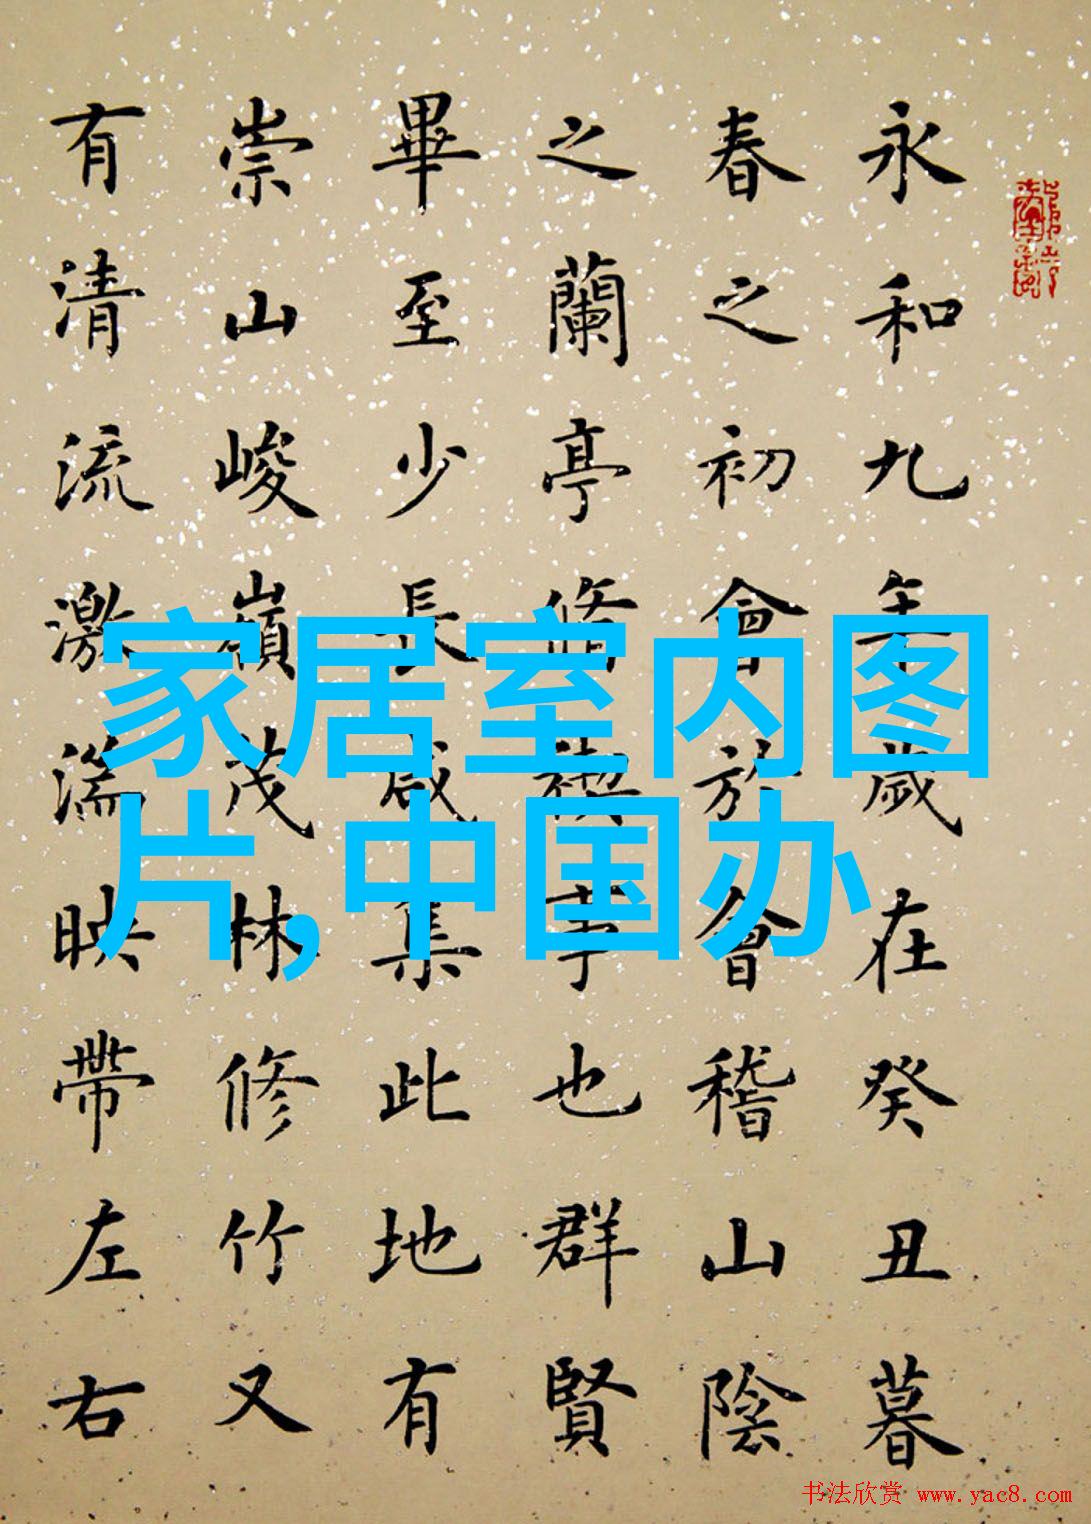 永和九年歲在癸丑暮
春之初會於會稽山陰
之蘭亭脩禊事也群賢
畢至少長咸集此地有
崇山峻嶺茂林修竹又
有清流激湍映帶左右
家居室内图
片,中国办
书法欣赏 www.yac8.com